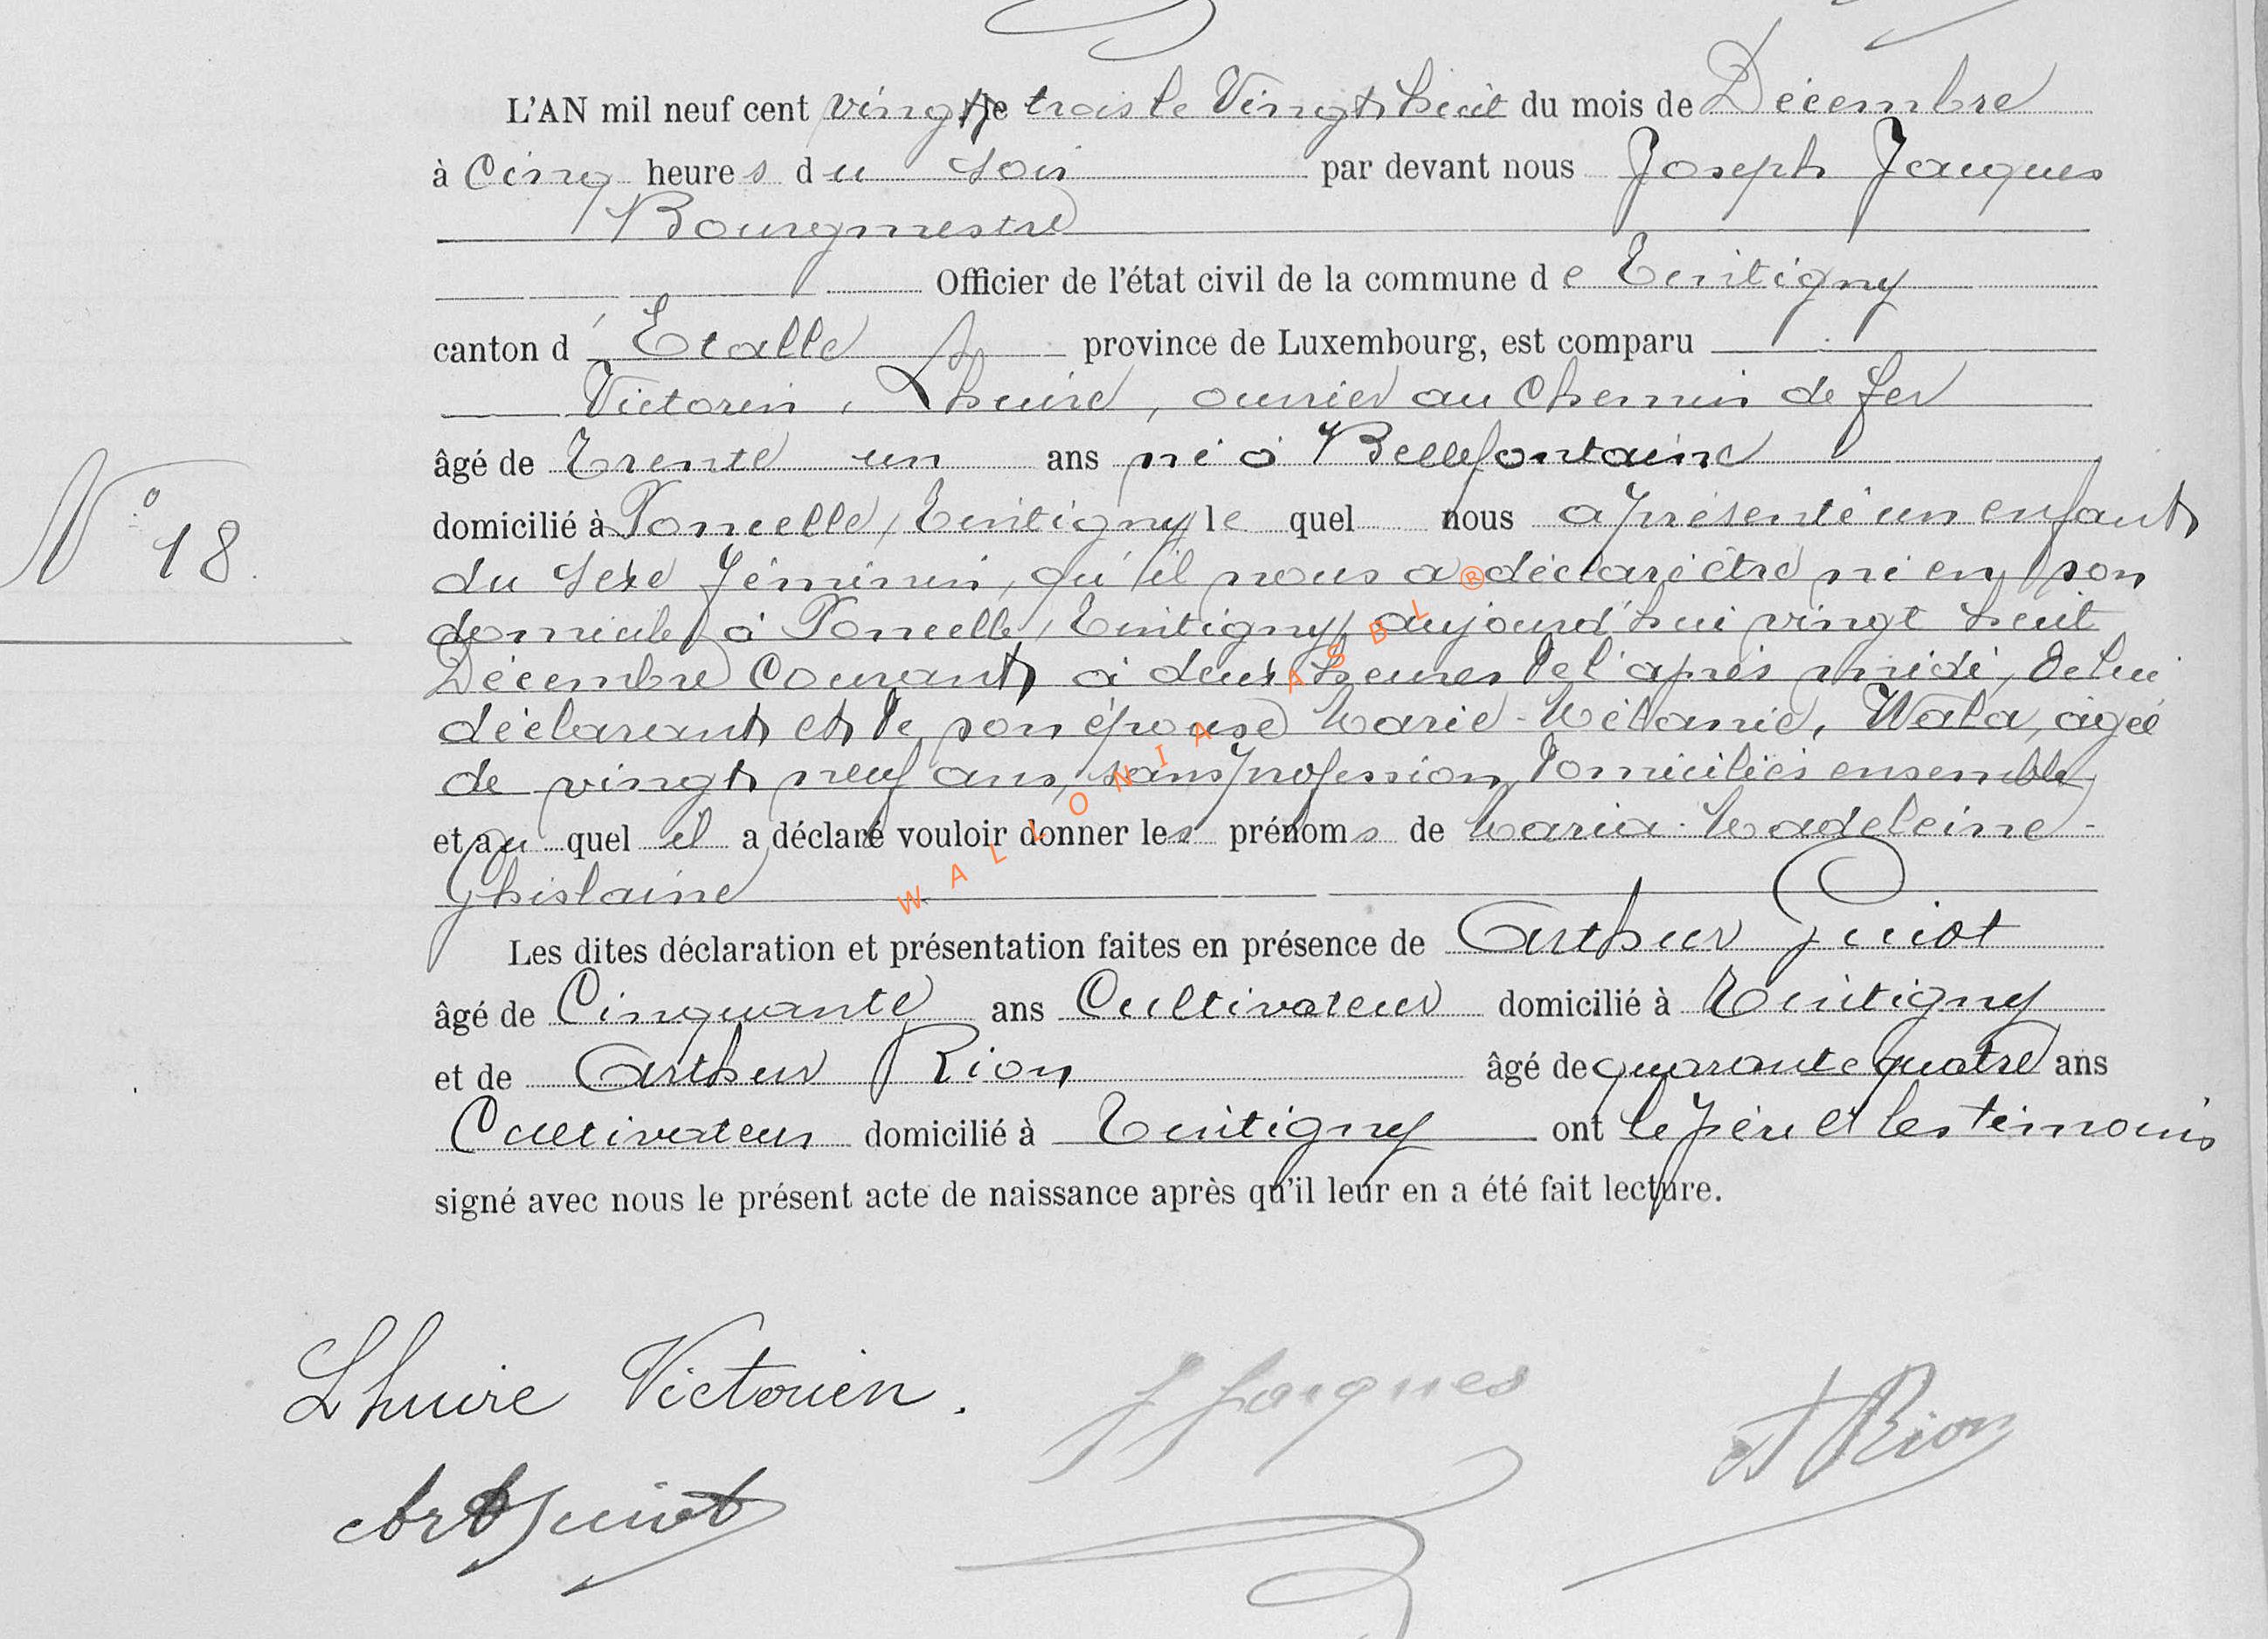 L'AN mil neuf cent vingt le trois le Vingt huit du mois de Décembre
à Cinq heures du soir par devant nous Joseph Jacques
Bourgmestre
Officier de l'état civil de la commune de Tintigny
canton d'Etalle province de Luxembourg, est comparu
Victorin, Lhuire, ouvrier au Chemin de fer
âgé de Trente un ans né à Bellefontaine
domicilié à Poncelle, Tintigny le quel nous a présenté un enfant
N° 18.
du sexe féminin, qu'il nous a déclaré être né en son
domicile à Poncelle, Tintigny, aujourd'hui vingt huit
Décembre Courant à deux heures de l'après midi, de lui
déclarant et de son épouse Marie-Mélanie, Wala, âgée
de vingt neuf ans, sans profession, domiciliés ensemble
et au quel il a déclaré vouloir donner les prénoms de Maria-Madeleine-
Ghislaine
WALLONIA ASBL ®
Les dites déclaration et présentation faites en présence de Arthur Guiot
âgé de Cinquante ans Cultivateur domicilié à Tintigny
et de Arthur Rion âgé de quarante quatre ans
Cultivateur domicilié à Tintigny ont le père et les témoins
signé avec nous le présent acte de naissance après qu'il leur en a été fait lecture.
Lhuire Victorien.
J Jacques
A Rion
Art Guiot